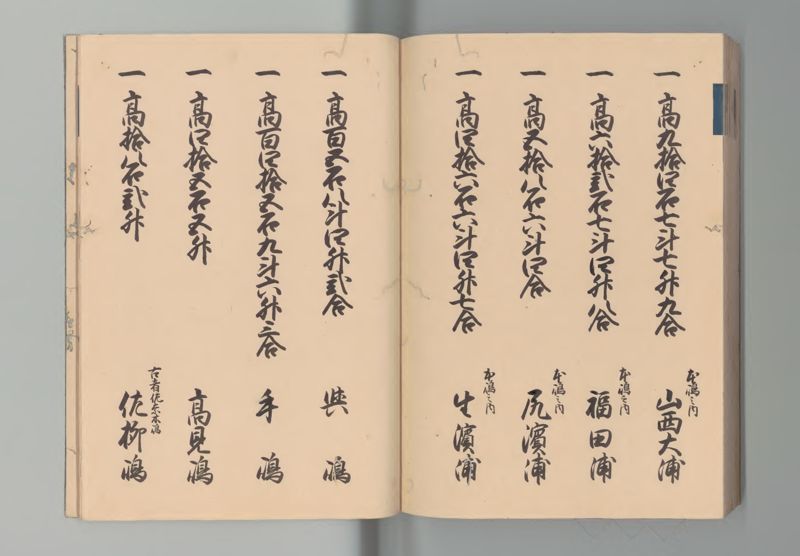 一 高九拾四石七斗七升九合
本嶋之内
山西大浦
一 高六拾弐石七斗四升八合
本嶋之内
福田浦
一 高五拾八石六斗四合
本嶋之内
尻濱浦
一 高四拾六石六斗四升七合
本嶋之内
生濱浦
一 高百五石八斗四升弐合
與嶋
一 高百四拾五石九斗六升三合
手嶋
一 高四拾五石五升
高見嶋
一 高拾八石弐升
古者
佐柳嶋